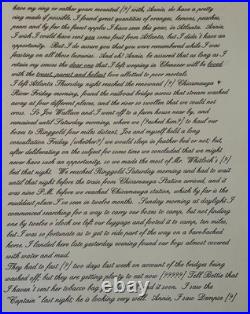 have my ring or rather your mended [?] with, Annie, do have a pretty
ring made if possible. I found great quantities of oranges, lemons, peaches,
pears and by far the finest apples I have seen this year, in Atlanta. Annie,
I wish I could have sent you some fruit from Atlanta, but I didn't have an
opportunity. But I do assure you that you were remembered while I was
feasting on all those luxuries. And oh! Annie, be assured that as long as I
retain my senses the dear one that I left weeping in Ebenezer will be loved
with the truest, purest and holiest love allotted to poor mortals.
I left Atlanta Thursday night reached the renowned [?] Chicamauga
River Friday morning, found the railroad bridges across that stream washed
away at four different places, and the river so swollen that we could not
cross. So Joe Wallace and I went off to a farm house near by, and
remained until Saturday evening, when we [tucked him?] to haul our
boxes to Ringgold four miles distant, Joe and myself held a long
consultation Friday (whether) we would sleep in feather bed or not; but,
after deliberating on the subject for some time we concluded that we might
never have such an opportunity, so we made the most of Mr. Whitlock's [?]
but that night. We reached Ringgold Saturday evening and had to wait
until that night before the train from Chicamauga Station arrived, and it
was nine P.M. before we Chicamauga station, which by far is the
muddiest place I've seen in twelve months. Sunday morning at daylight I
commenced searching for a way to carry our boxes to camp, but not finding
one by twelve o'clock we left our luggage and footed it to camp, ten miles,
but I was so fortunate as to get to ride part of the way on a bare-backed
horse. I landed here late yesterday evening found our boys almost covered
with water and mud.
They had to fast [?] two days last week on account of the bridges being
washed off, but they are getting plenty to eat now [?????] Tell Bettie that
I haven't sent her tobacco bag
"Captain" last night; he is looking very well. Annie, I saw Dampse [?]